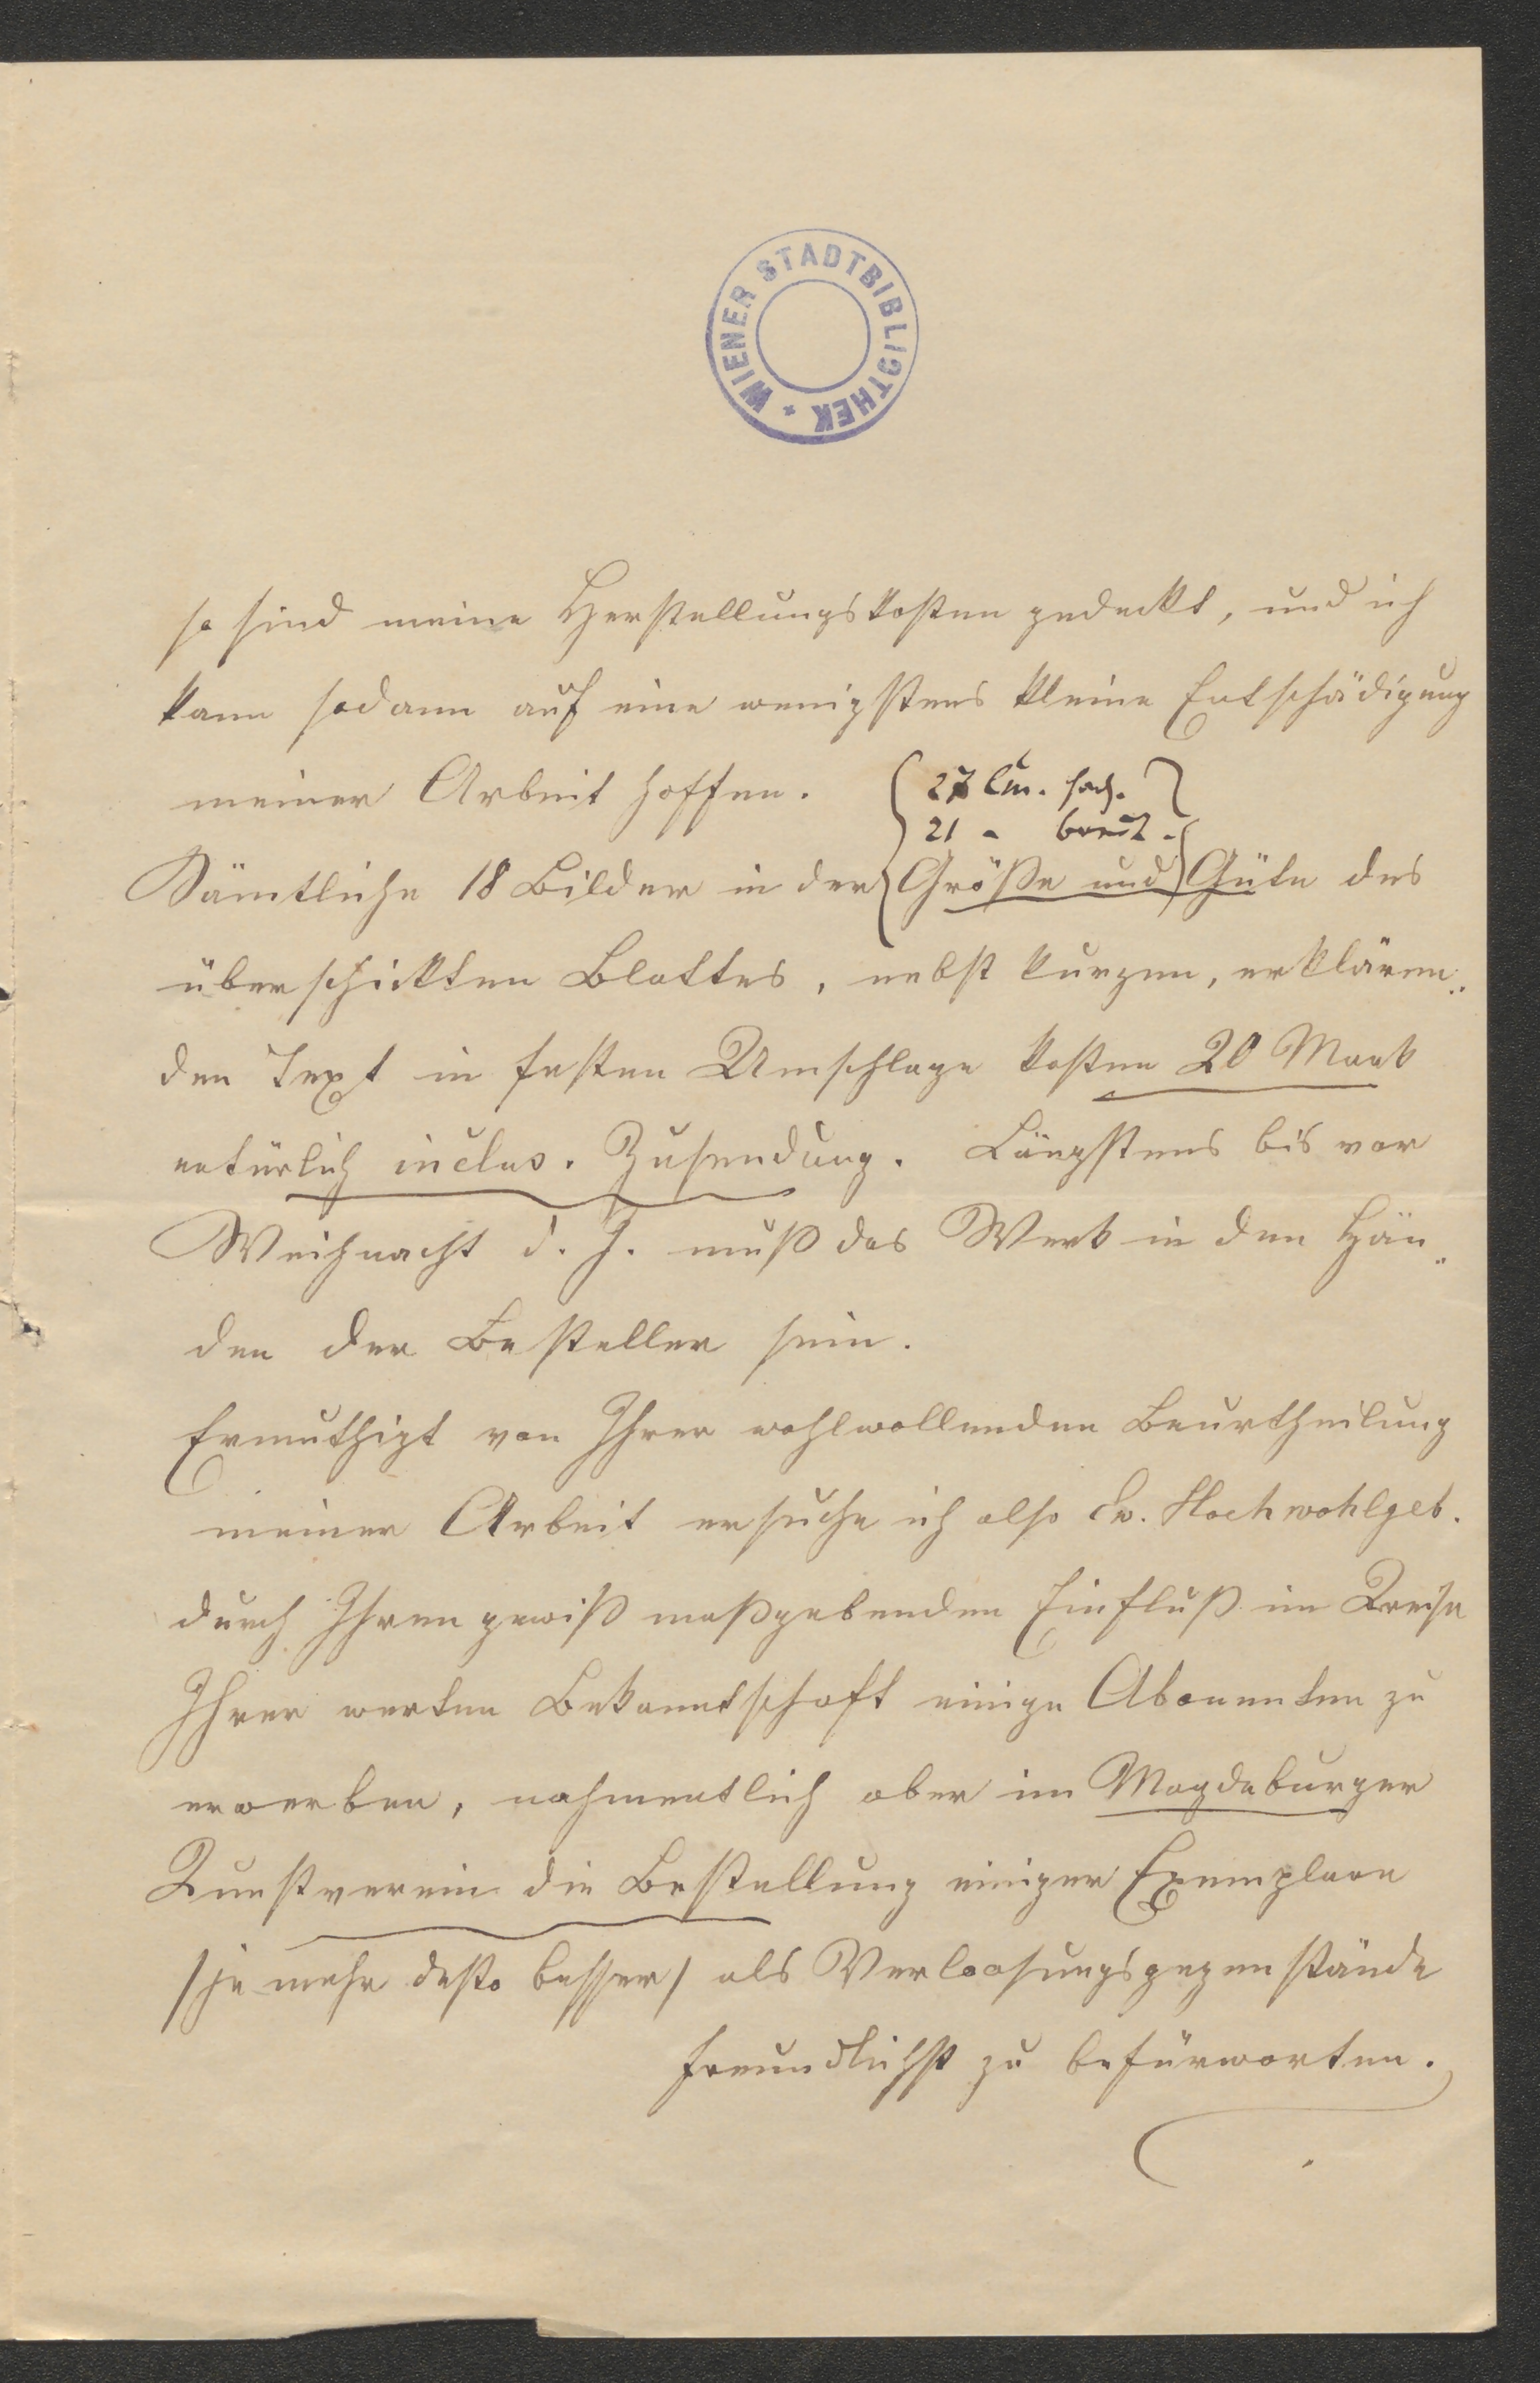 WIENER STADTBIBLIOTHEK *
so sind meine Herstellungskosten gedeckt, und ich
kann sodann auf eine wenigstens kleine Entschädigung
meiner Arbeit hoffen.
27 Cm. hoch.
21 " breit.
Sämtliche 18 Bilder in der Größe und Güte des
überschickten Blattes, nebst kurzen, erklären-
den Text in festen Umschlage kosten 20 Mark
natürlich inclus. Zusendung. Längstens bis vor
Weihnacht d. J. muß das Werk in den Hän-
den der Besteller sein.
Ermuthigt von Ihrer wohlwollenden Beurtheilung
meiner Arbeit ersuche ich also Ew. Hochwohlgeb.
durch Ihren gewiß maßgebenden Einfluß im Kreise
Ihrer werten Bekanntschaft einige Abonenten zu
erwerben, nahmentlich aber im Magdeburger
Kunstverein die Bestellung einiger Exemplare
/je mehr desto besser/ als Verloosungsgegenstände
freundlichst zu befürworten.